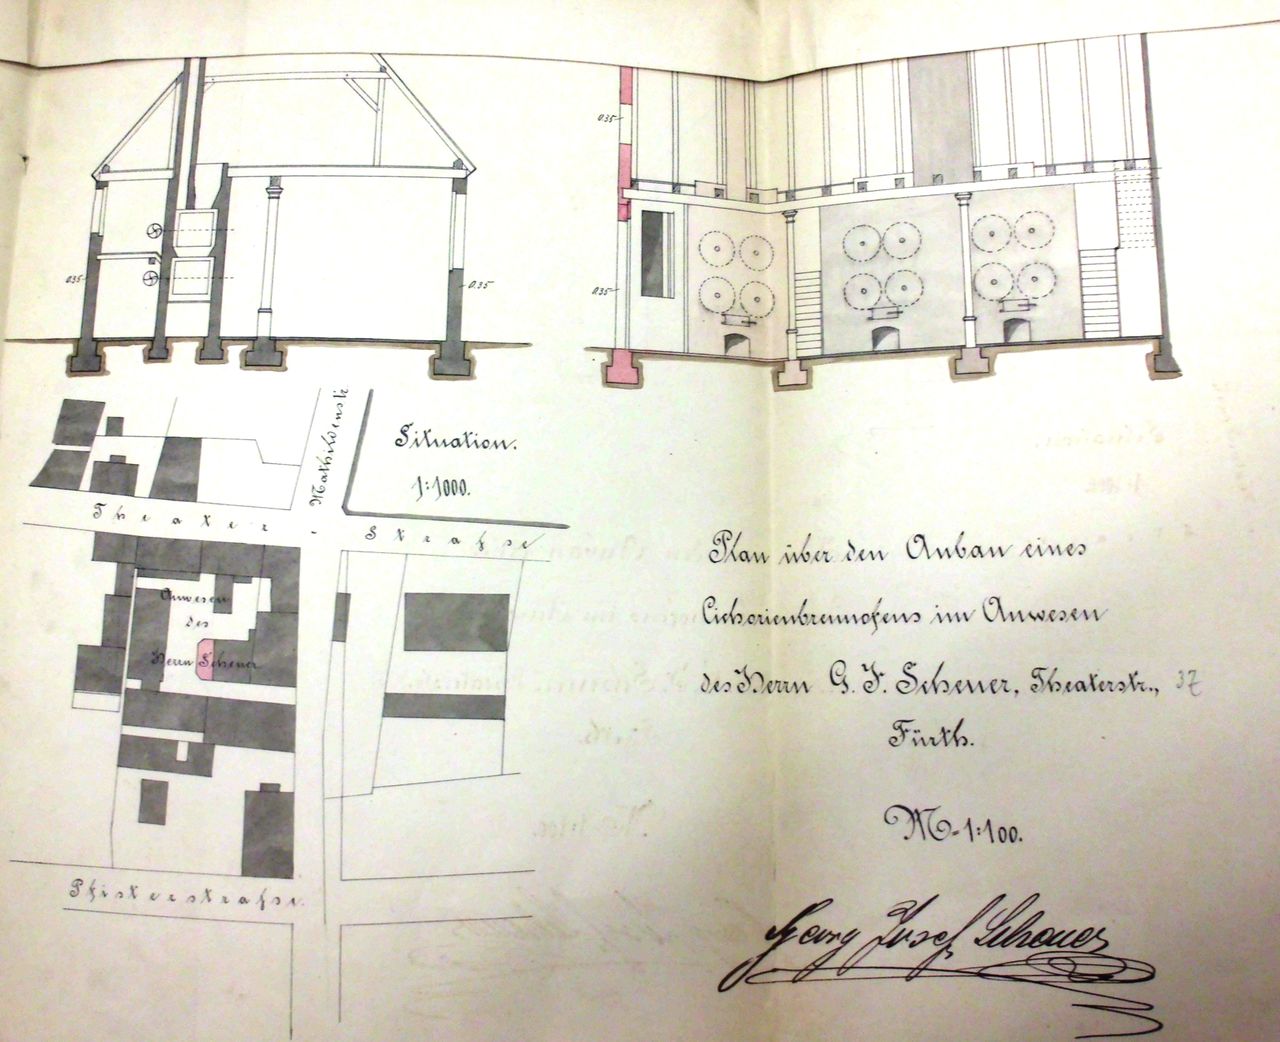 0.35
0.35
0.35
0.35
Situation.
1:1000.
Mathildenstr.
Theater - Strasse
Anwesen
des
Herrn Scheuer
Pfisterstrasse.
Plan über den Anbau eines
Cichorienbrennofens im Anwesen
des Herrn G. J. Scheuer, Theaterstr., 37
Fürth.
M-1:100.
Georg Josef Scheuer